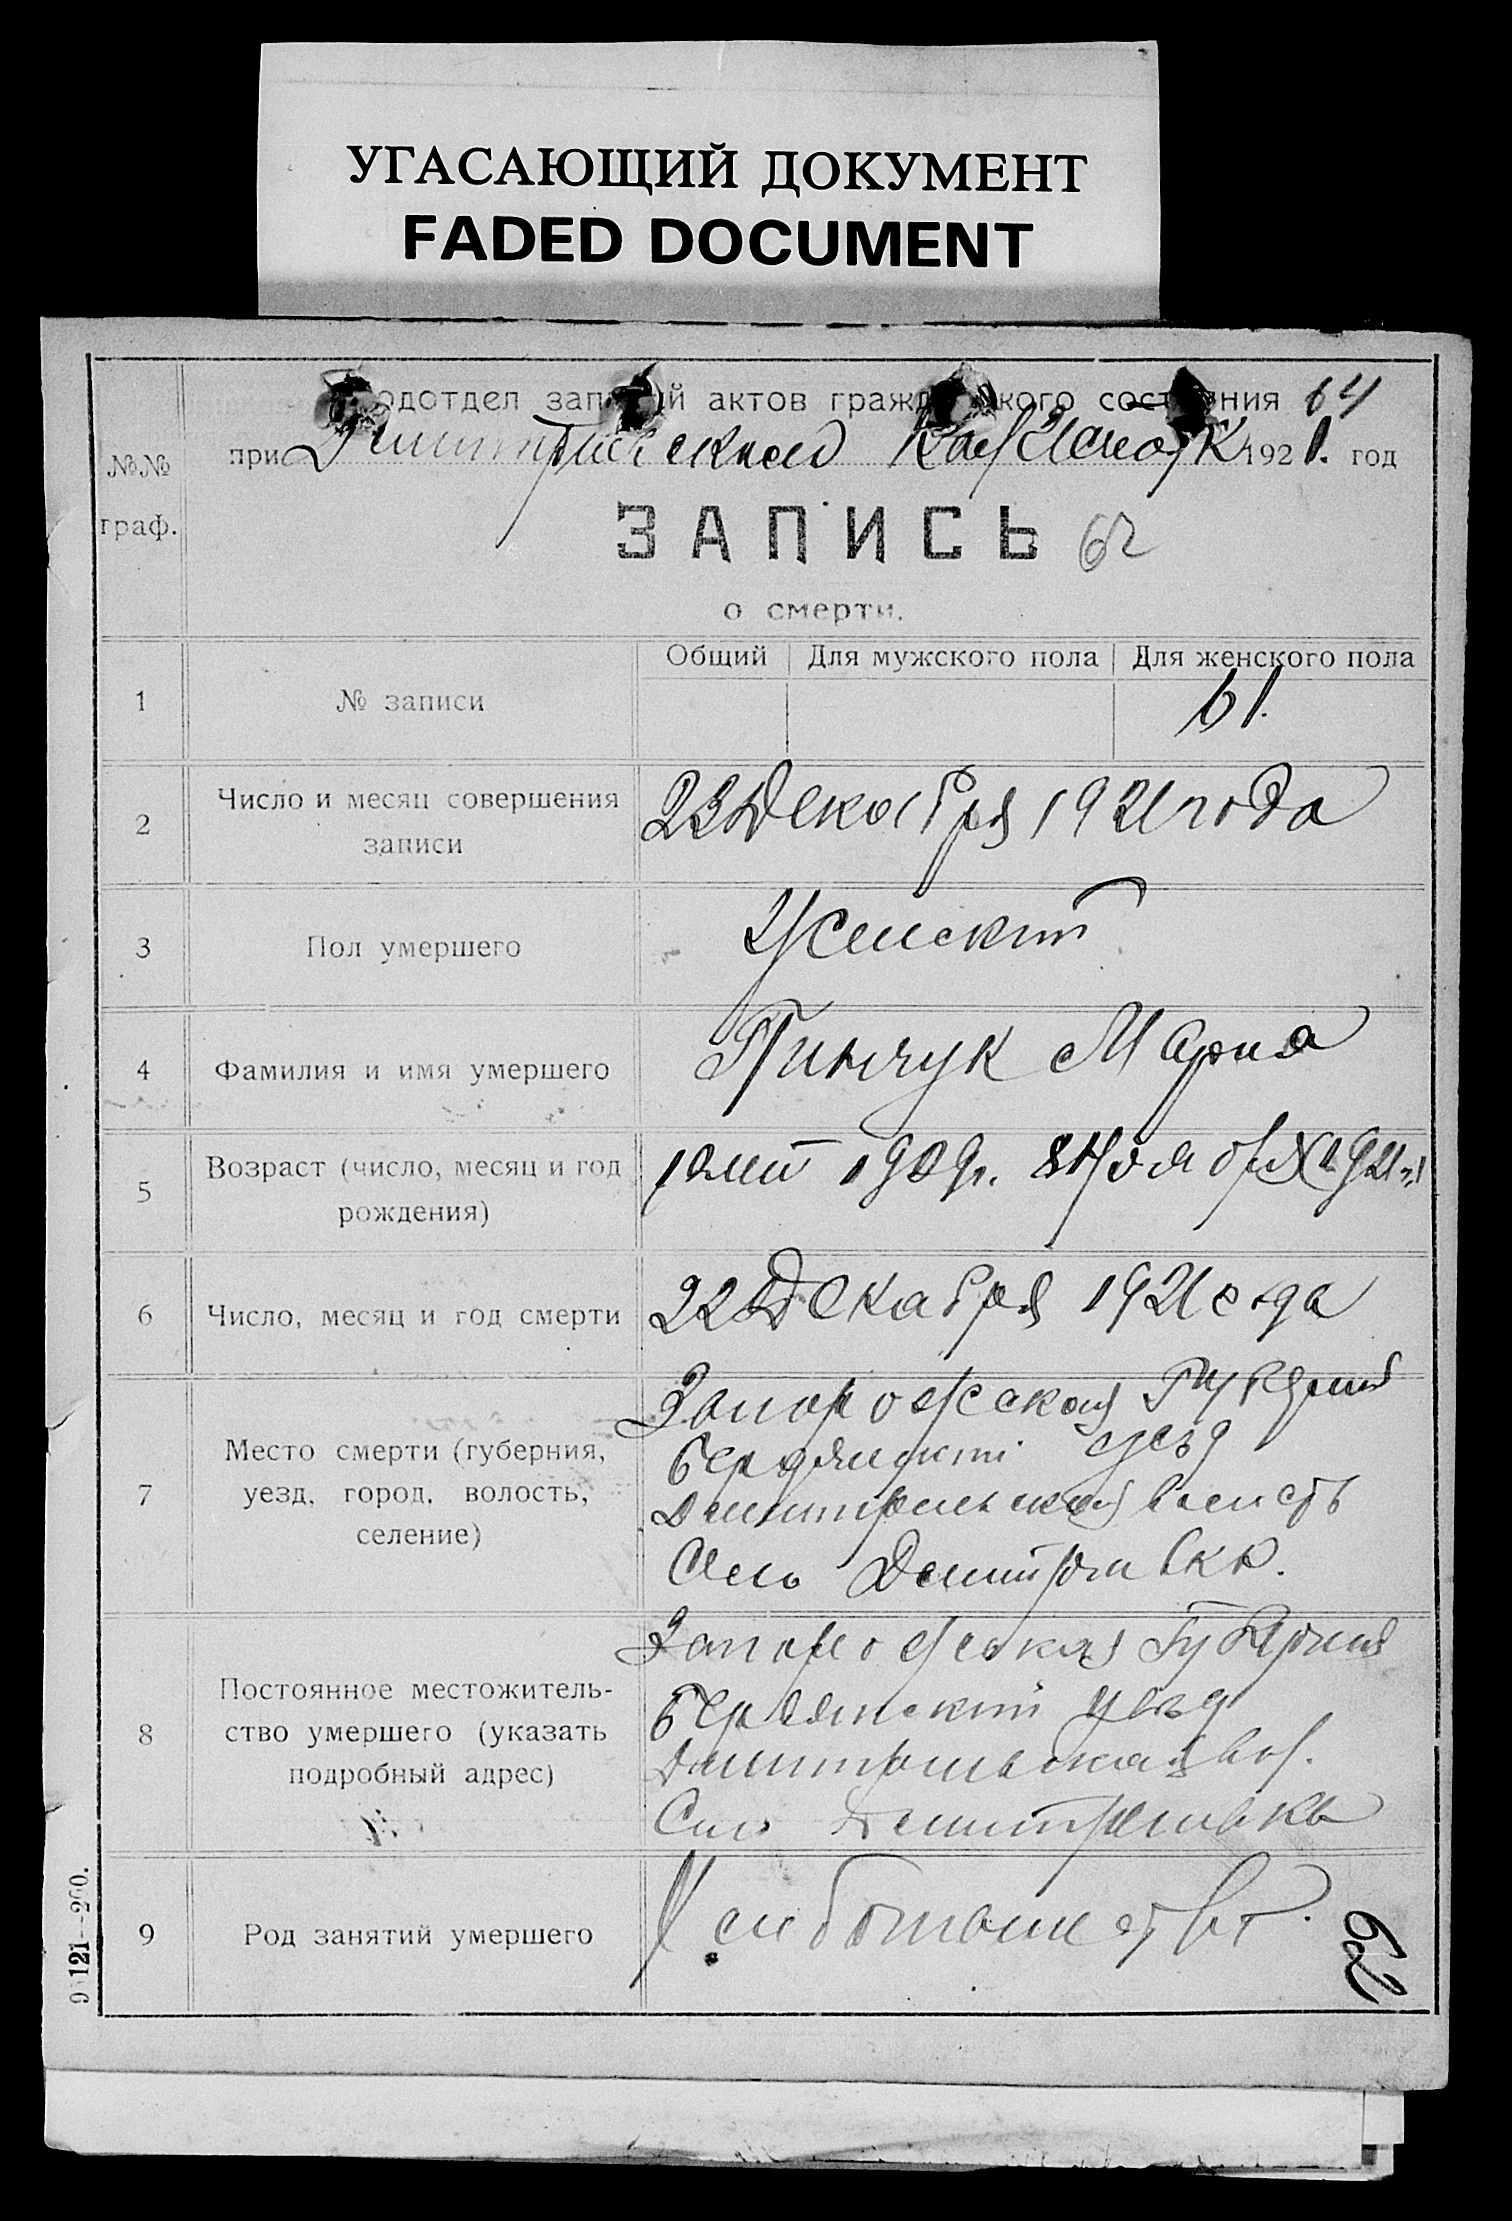 УГАСАЮЩИЙ ДОКУМЕНТ
FADED DOCUMENT
№№
граф.
одотдел записей актов гражданского состояния 64
при 1921. год
ЗАПИСЬ 62
о смерти.
Общий Для мужского пола Для женского пола
1 № записи 61.
2 Число и месяц совершения
записи
23 Декабря 1921 года
3 Пол умершего Женский
4 Фамилия и имя умершего Пинчук Мария
5 Возраст (число, месяц и год
рождения)
6 Число, месяц и год смерти 22 Декабря 1921 года
7 Место смерти (губерния,
уезд, город, волость,
селение)
Запорожская Губерния
Бердянский уезд
волость
Село
8 Постоянное местожитель-
ство умершего (указать
подробный адрес)
Запорожская Губерния
Бердянский уезд
вол.
Село
9 Род занятий умершего
62